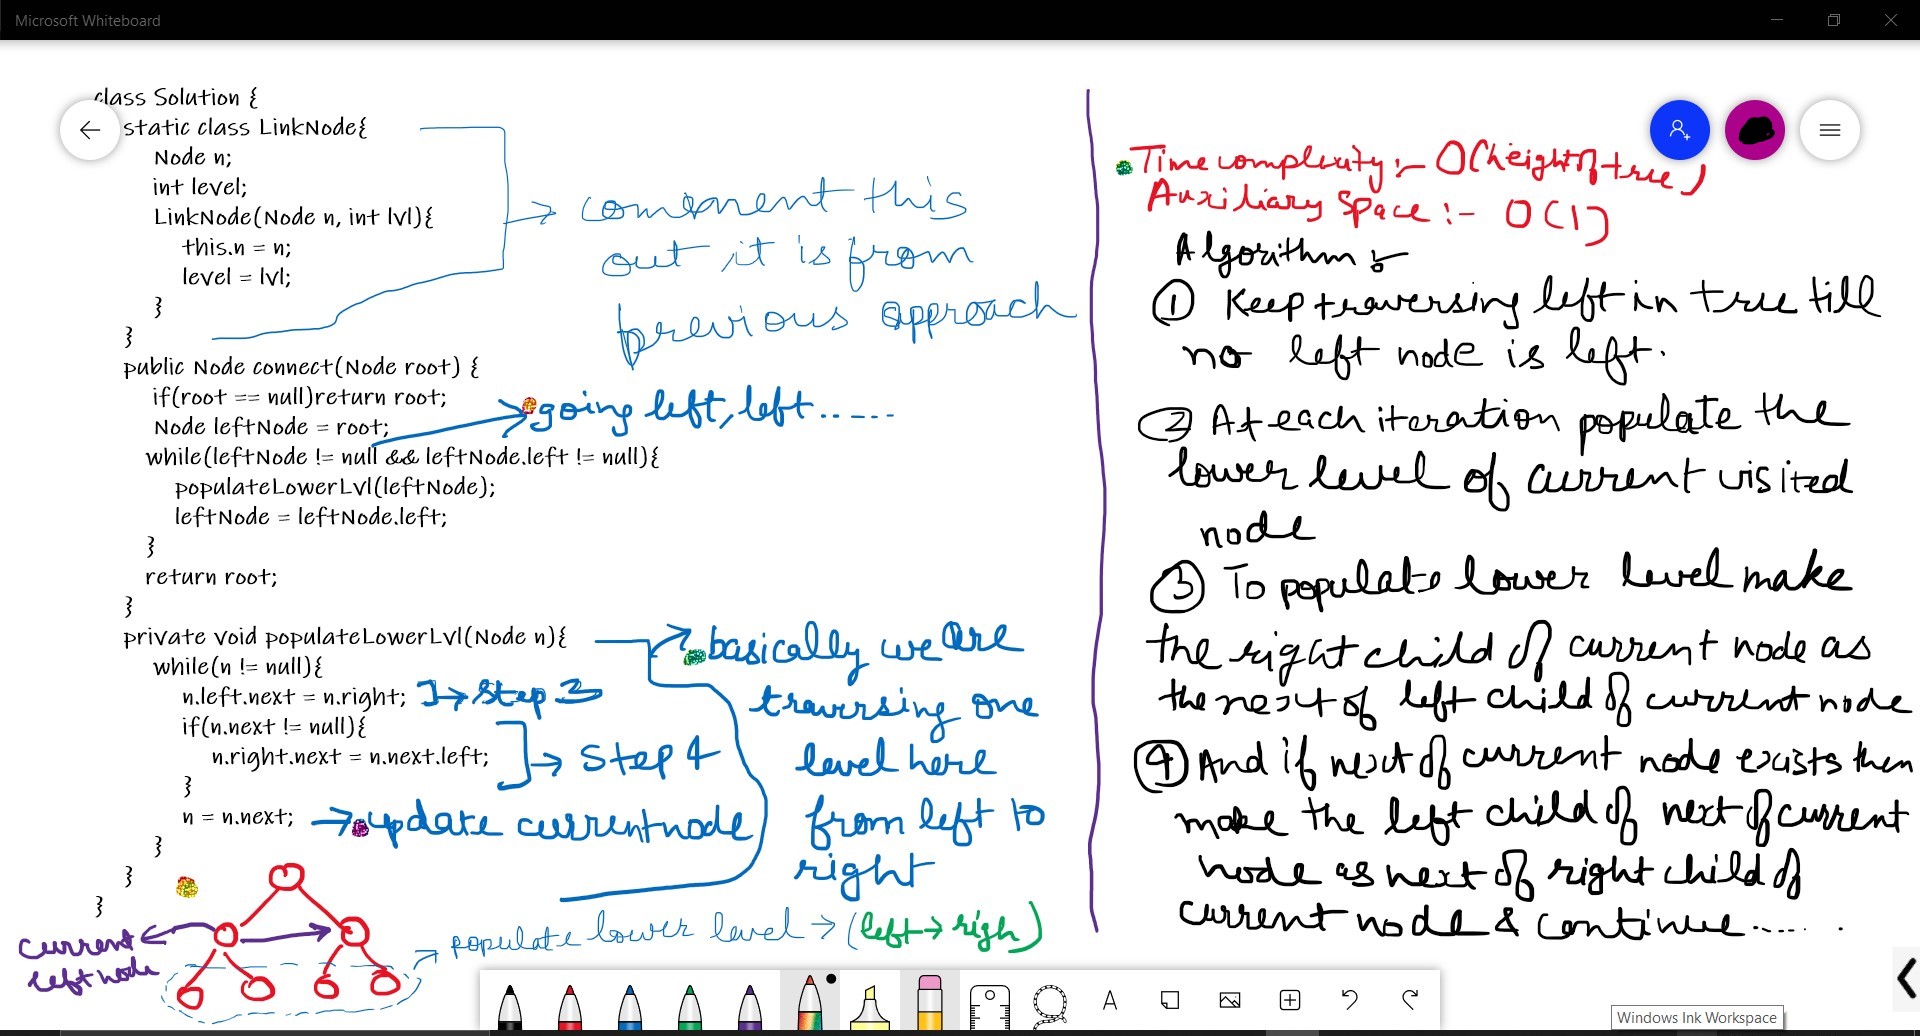 Microsoft Whiteboard
class Solution {
static class LinkNode{
Node n;
int level;
LinkNode(Node n, int lvl){
this.n = n;
level = lvl;
}
}
public Node connect(Node root) {
if(root == null)return root;
Node leftNode = root;
while(leftNode != null && leftNode.left != null){
populateLowerLvl(leftNode);
leftNode = leftNode.left;
}
return root;
}
private void populateLowerLvl(Node n){
while(n != null){
n.left.next = n.right;
if(n.next != null){
n.right.next = n.next.left;
}
n = n.next;
}
}
}
→ comment this
out it is from
previous approach
going left, left.....
] → Step 3
] → Step 4
→ update current node
basically we are
traversing one
level here
from left to
right
current
left node
→ populate lower level → (left → righ)
Time complexity :- O(height of tree)
Auxiliary Space :- O(1)
Algorithm :-
① Keep traversing left in tree till
no left node is left.
② At each iteration populate the
lower level of current visited
node
③ To populate lower level make
the right child of current node as
the next of left child of current node
④ And if next of current node exists then
make the left child of next of current
node as next of right child of
current node & continue.....
A
Windows Ink Workspace